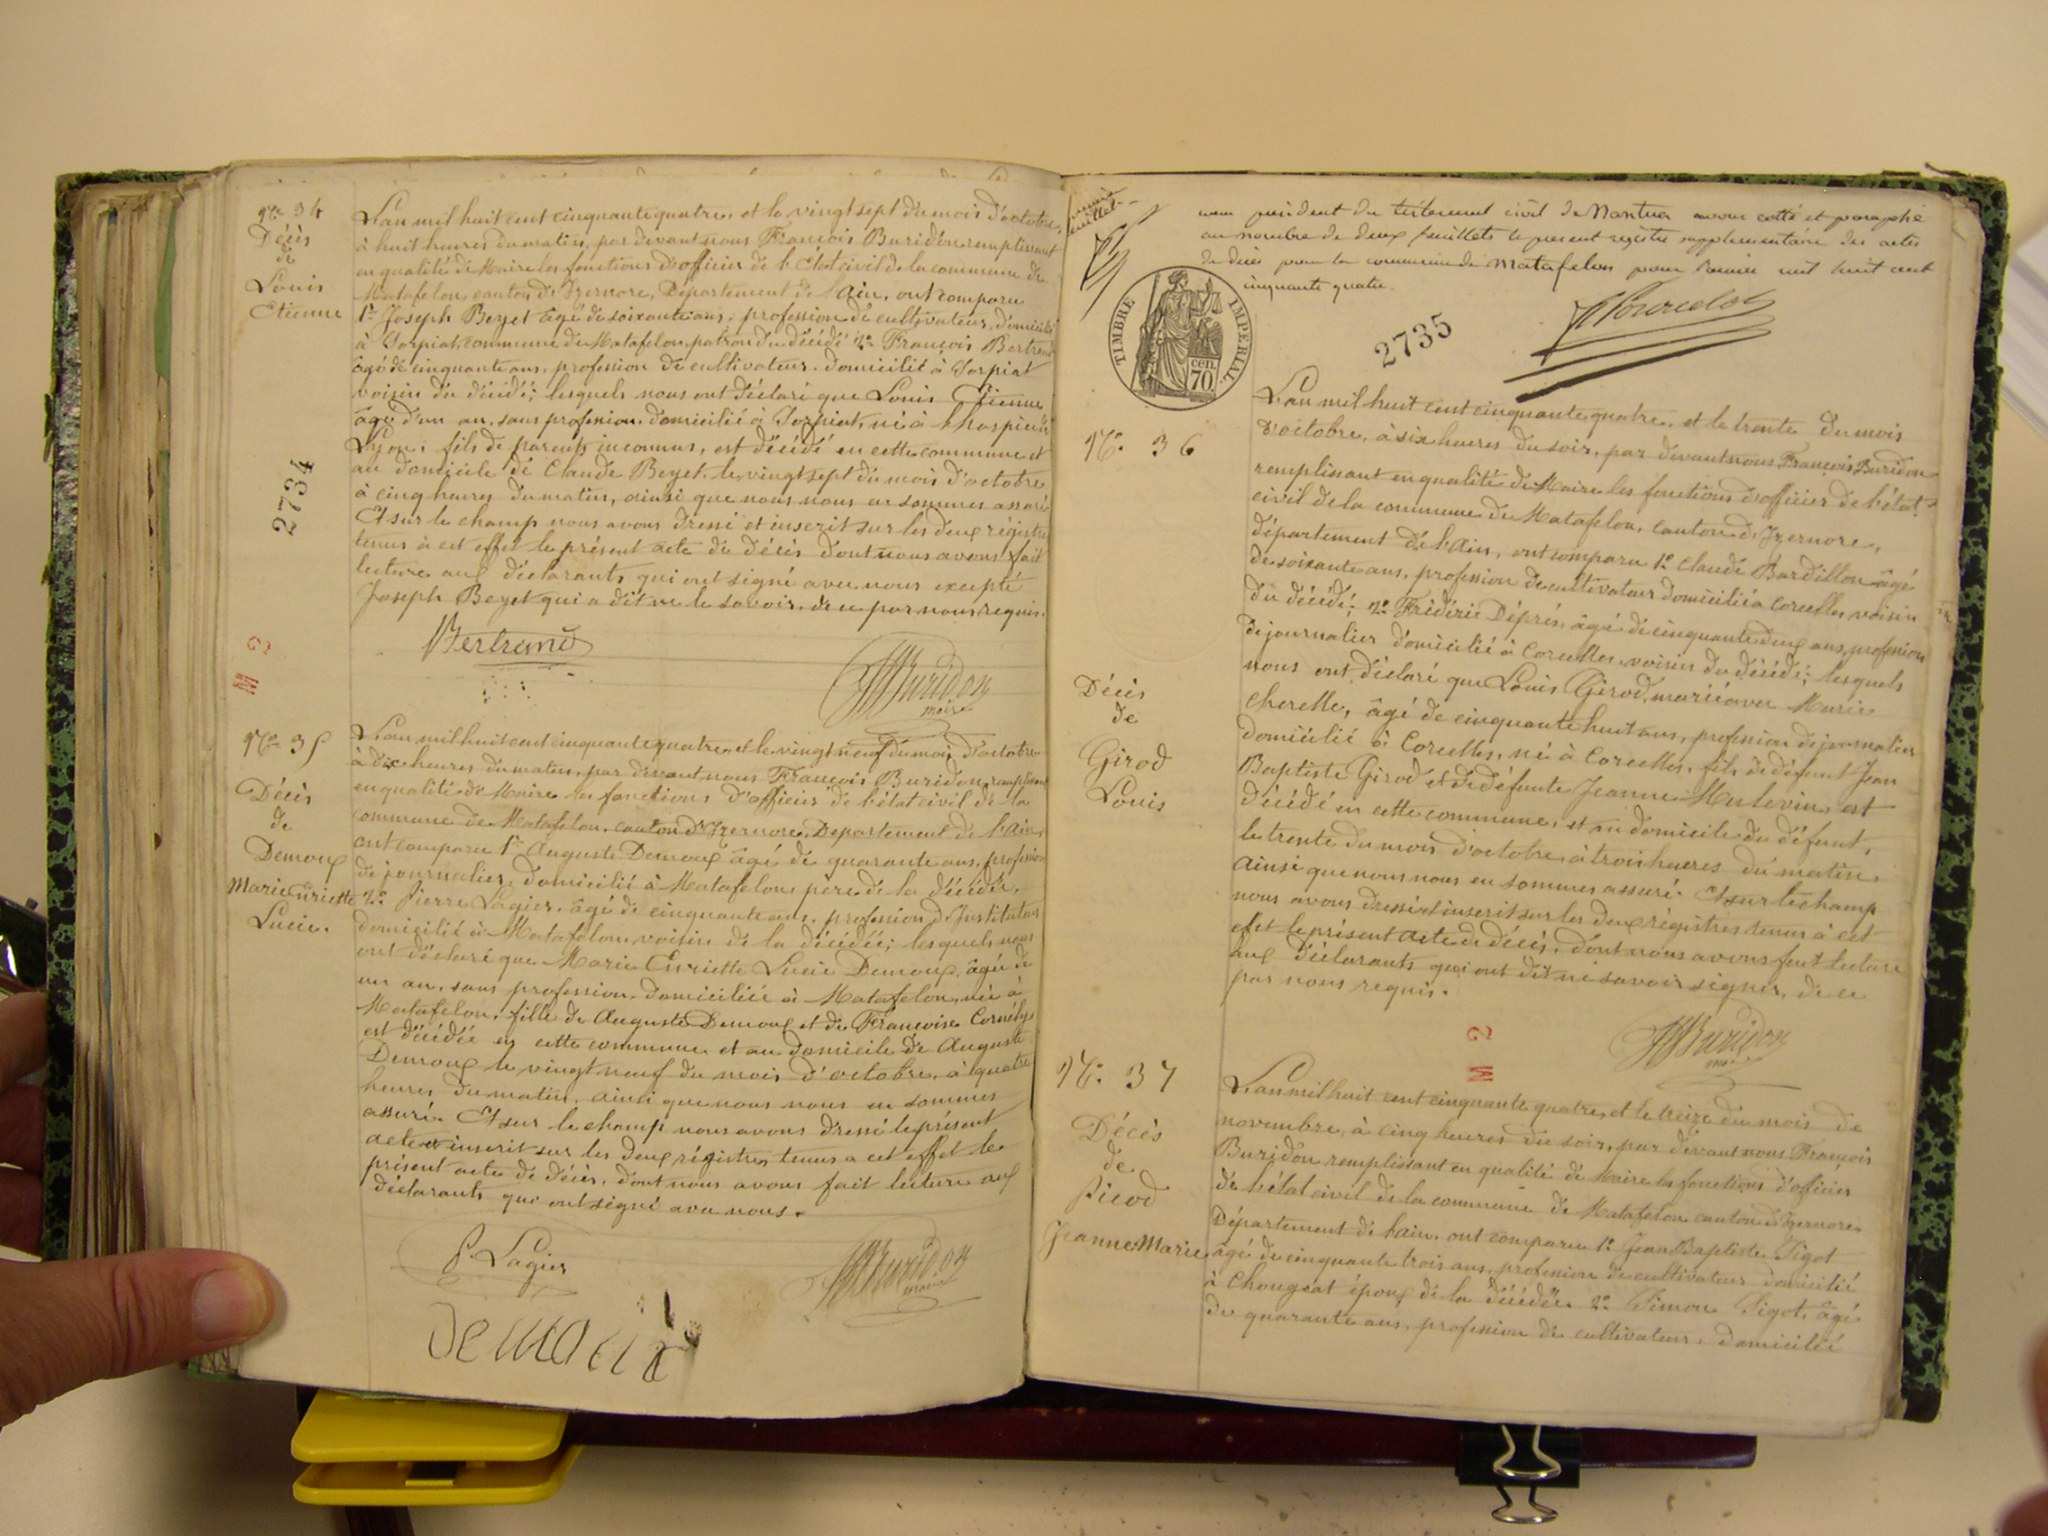 No. 34
Décès
de
Louis
Etienne
2734
L'an mil huit cent cinquante quatre, et le vingt sept du mois d'octobre,
à huit heures du matin, par devant nous François Buridon remplissant
en qualité de Maire les fonctions d'officier de l'Etat civil de la commune de
Matafelon, canton d'Izernore, Département de l'Ain, ont comparu
1º Joseph Beyet âgé de soixante ans, profession de cultivateur, domicilié
à Corpiat, commune de Matafelon, patron du décédé 2º François Bertrand
âgé de cinquante ans, profession de cultivateur domicilié à Corpiat
voisin du décédé; lesquels nous ont déclaré que Louis Etienne
âgé d'un an, sans profession, domicilié à Corpiat, né à l'hospice
Lyon, fils de parents inconnus, est décédé en cette commune et
au domicile de Claude Beyet, le vingt sept du mois d'octobre
à cinq heures du matin, ainsi que nous nous en sommes assuré
Et sur le champ nous avons dressé et inscrit sur les deux régistres
tenus à cet effet le présent acte de décès dont nous avons fait
lecture aux déclarants qui ont signé avec nous excepté
Joseph Beyet qui a dit ne le savoir de ce par nous requis.
Bertrand
Buridon
maire
No. 35
Décès
de
Demoux
Marie Enriette
Lucie.
L'an mil huit cent cinquante quatre, et le vingt neuf du mois d'octobre
à dix heures du matin, par devant nous François Buridon, remplissant
en qualité de Maire les fonctions d'officier de l'état civil de la
commune de Matafelon, canton d'Izernore, Département de l'Ain,
ont comparu 1º Auguste Demoux âgé de quarante ans, profession
de journalier, domicilié à Matafelon, père de la décédée,
2º Pierre Lagier, âgé de cinquante ans, profession d'Instituteur
domicilié à Matafelon, voisin de la décédée; lesquels nous
ont déclaré que Marie Enriette Lucie Demoux, âgée de
un an, sans profession, domiciliée à Matafelon, née à
Matafelon, fille de Auguste Demoux et de Françoise Cornély
est décédée en cette commune et au domicile de Auguste
Demoux le vingt neuf du mois d'octobre, à quatre
heures du matin, ainsi que nous nous en sommes
assuré. Et sur le champ nous avons dressé le présent
acte et inscrit sur les deux régistres tenus a cet effet le
présent acte de décès, dont nous avons fait lecture aux
déclarants qui ont signé avec nous.
P. Lagier
Buridon
maire
feuillet
président du tribunal civil de Nantua avons cotté et paraphé
au nombre de deux feuillets le présent registre supplémentaire des actes
de décès pour la commune de Matafelon pour l'année mil huit cent
cinquante quatre.
TIMBRE IMPERIAL
70 cen.
2735
No. 36
Décès
de
Girod
Louis
L'an mil huit cent cinquante quatre, et le trente du mois
d'octobre, à six heures du soir, par devant nous François Buridon
remplissant en qualité de Maire les fonctions d'officier de l'état
civil de la commune de Matafelon, canton d'Izernore,
département de l'Ain, ont comparu 1º Claude Bardillon âgé
de soixante ans, profession de cultivateur domicilié à Corcelles, voisin
du décédé; 2º Frédéric Déprés, âgé de cinquante deux ans, profession
de journalier domicilié à Corcelles, voisin du décédé; lesquels
nous ont déclaré que Louis Girod, marié avec Marie
Cherelle, âgé de cinquante huit ans, profession de journalier
domicilié à Corcelles, né à Corcelles, fils de défunt Jean
Baptiste Girod et de défunte Jeanne est
décédé en cette commune, et au domicile du défunt,
le trente du mois d'octobre à trois heures du matin,
ainsi que nous nous en sommes assuré. Et sur le champ
nous avons dressé et inscrit sur les deux régistres tenus à cet
effet le présent acte de décès, dont nous avons fait lecture
aux déclarants qui ont dit ne savoir signer, de ce
par nous requis.
Buridon
No. 37
Décès
de
Picod
Jeanne Marie
L'an mil huit cent cinquante quatre, et le treize du mois de
novembre, à cinq heures du soir, par devant nous François
Buridon remplissant en qualité de Maire les fonctions d'officier
de l'état civil de la commune de Matafelon canton d'Izernore
Département de l'ain, ont comparu 1º Jean Baptiste Pigot
âgé de cinquante trois ans, profession de cultivateur domicilié
à Chougeat époux de la décédée. 2º Simon Pigot, âgé
de quarante ans, profession de cultivateur, domicilié